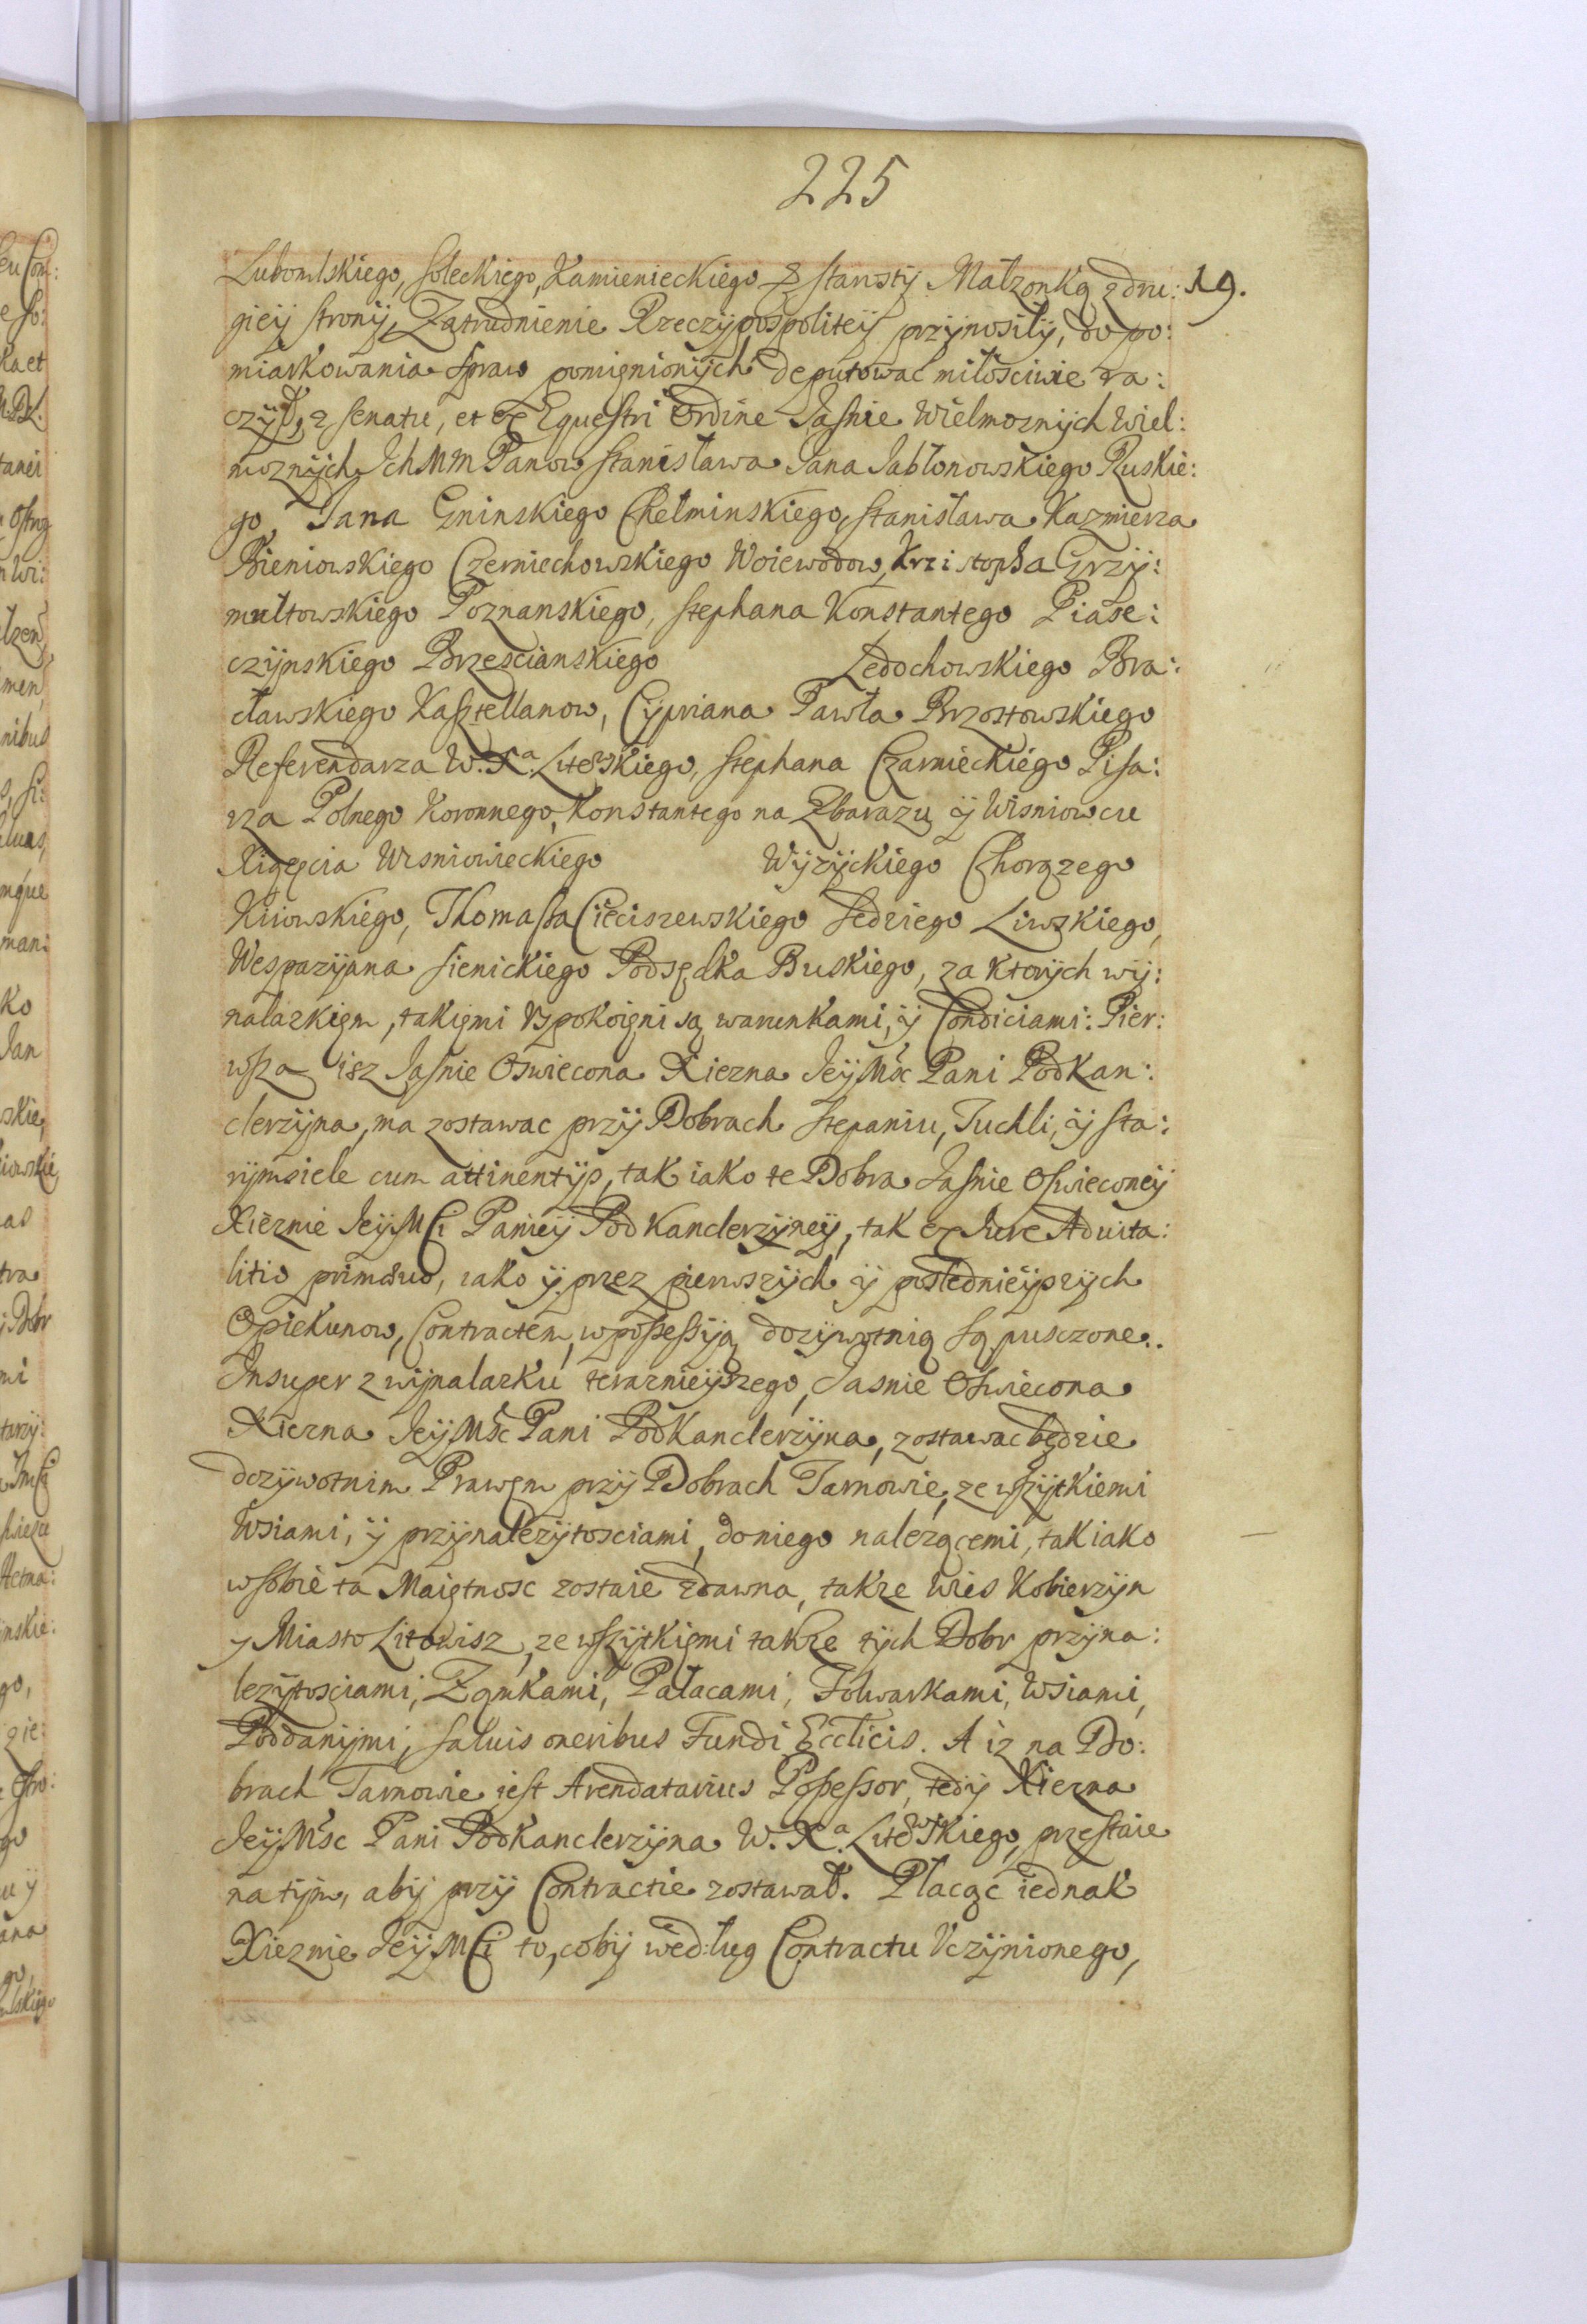 225
Lubomlskiego, Soleckiego, Kamienieckiego & Starosty Małzonką z dru: 19.
gieÿ stronÿ, Zatrudnienie Rzeczÿpospoliteÿ przÿnosiłÿ, do po:
miarkowania Spraw pomięnionÿch deputować miłosciwie ra:
czÿł, z Senatu, et ex Equestri Ordine Jasnie Wielmoznÿch Wiel:
moznÿch Ich MM Panow Stanisława Jana Jabłonowskiego Ruskie:
go, Jana Gninskiego Chełminskiego, Stanisława Kazmierza
Bieniowskiego Czerniechowskiego Woiewodow, Krzistopha Grzÿ:
mułtowskiego Poznanskiego, Stephana Konstantego Piase:
czÿnskiego Brzescianskiego Ledochowskiego Bra:
cławskiego Kasztellanow, Cÿpriana Pawła Brzostowskiego
Referendarza W. Xa. Litewskiego, Stephana Czarnieckiego Pisa:
rza Polnego Koronnego, Konstantego na Zbarazu ÿ Wisniowcu
Xiązęcia Wisniowieckiego Wÿzÿckiego Chorązego
Kiiowskiego, Thomasza Cieciszewskiego Sedziego Liwskiego,
Wespazÿana Sienickiego Podsędka Buskiego, za ktorÿch wÿ:
nalazkięm, takięmi Vspokoięni są warunkami, ÿ Condiciami: Pier:
wsza isz Jasnie Oswiecona Xiezna JeÿMsc Pani Podkan:
clerzÿna, ma zostawac przÿ Dobrach Stepaniu, Tuchli, ÿ Sta:
rÿmsiele cum attinentÿs, tak iako te Dobra Jasnie Oswieconeÿ
Xiėznie JeÿMCi Panieÿ Podkanclerzÿneÿ, tak ex Iure Aduita:
litio primæuo, iako ÿ przez pierwszÿch ÿ poslednieÿszÿch
Opiekunow, Contractem, w possessÿą dozÿwotnią są pusczone..
Insuper z wÿnalazku teraznieÿszego, Jasnie Oswiecona
Xiezna JeÿMsc Pani Podkanclerzÿna, zostawac będzie
dozÿwotnim Prawęm przÿ Dobrach Tarnowie, ze wszÿtkiemi
Wsiami, ÿ przÿnalezÿtosciami, do niego nalezącemi, tak iako
w sobie ta Maiętnosc zostaie zdawna, takze Wies Kobierzÿn
y Miasto Litowisz, ze wszÿtkięmi takze tÿch Dobr przÿna:
lezÿtosciami, Zamkami, Pałacami, Folwarkami, Wsiami,
Poddanÿmi, saluis oneribus Fundi Ecclicis. A iz na Do:
brach Tarnowie iest Arendatarius Possessor, tedÿ Xiezna
JeÿMsc Pani Podkanclerzÿna W. Xa. Litewskiego, przestaie
na tÿm, abÿ przÿ Contractie zostawał. Płacąc iednak
Xieznie JeÿMCi to, cobÿ według Contractu Vczÿnionego,